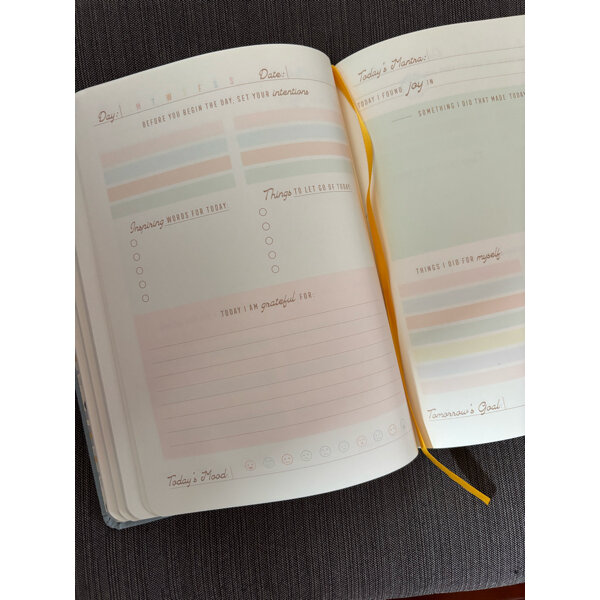 Day: M T W T F S S Date:
BEFORE YOU BEGIN THE DAY; SET YOUR intentions
Inspiring WORDS FOR TODAY:
Things TO LET GO OF TODAY
TODAY I AM grateful FOR:
Today's Mood:
Today's Mantra:
TODAY I FOUND joy IN
SOMETHING I DID THAT MADE TODAY
THINGS I DID FOR myself:
Tomorrow's Goal